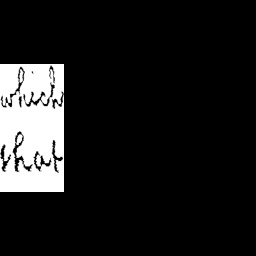 which
that